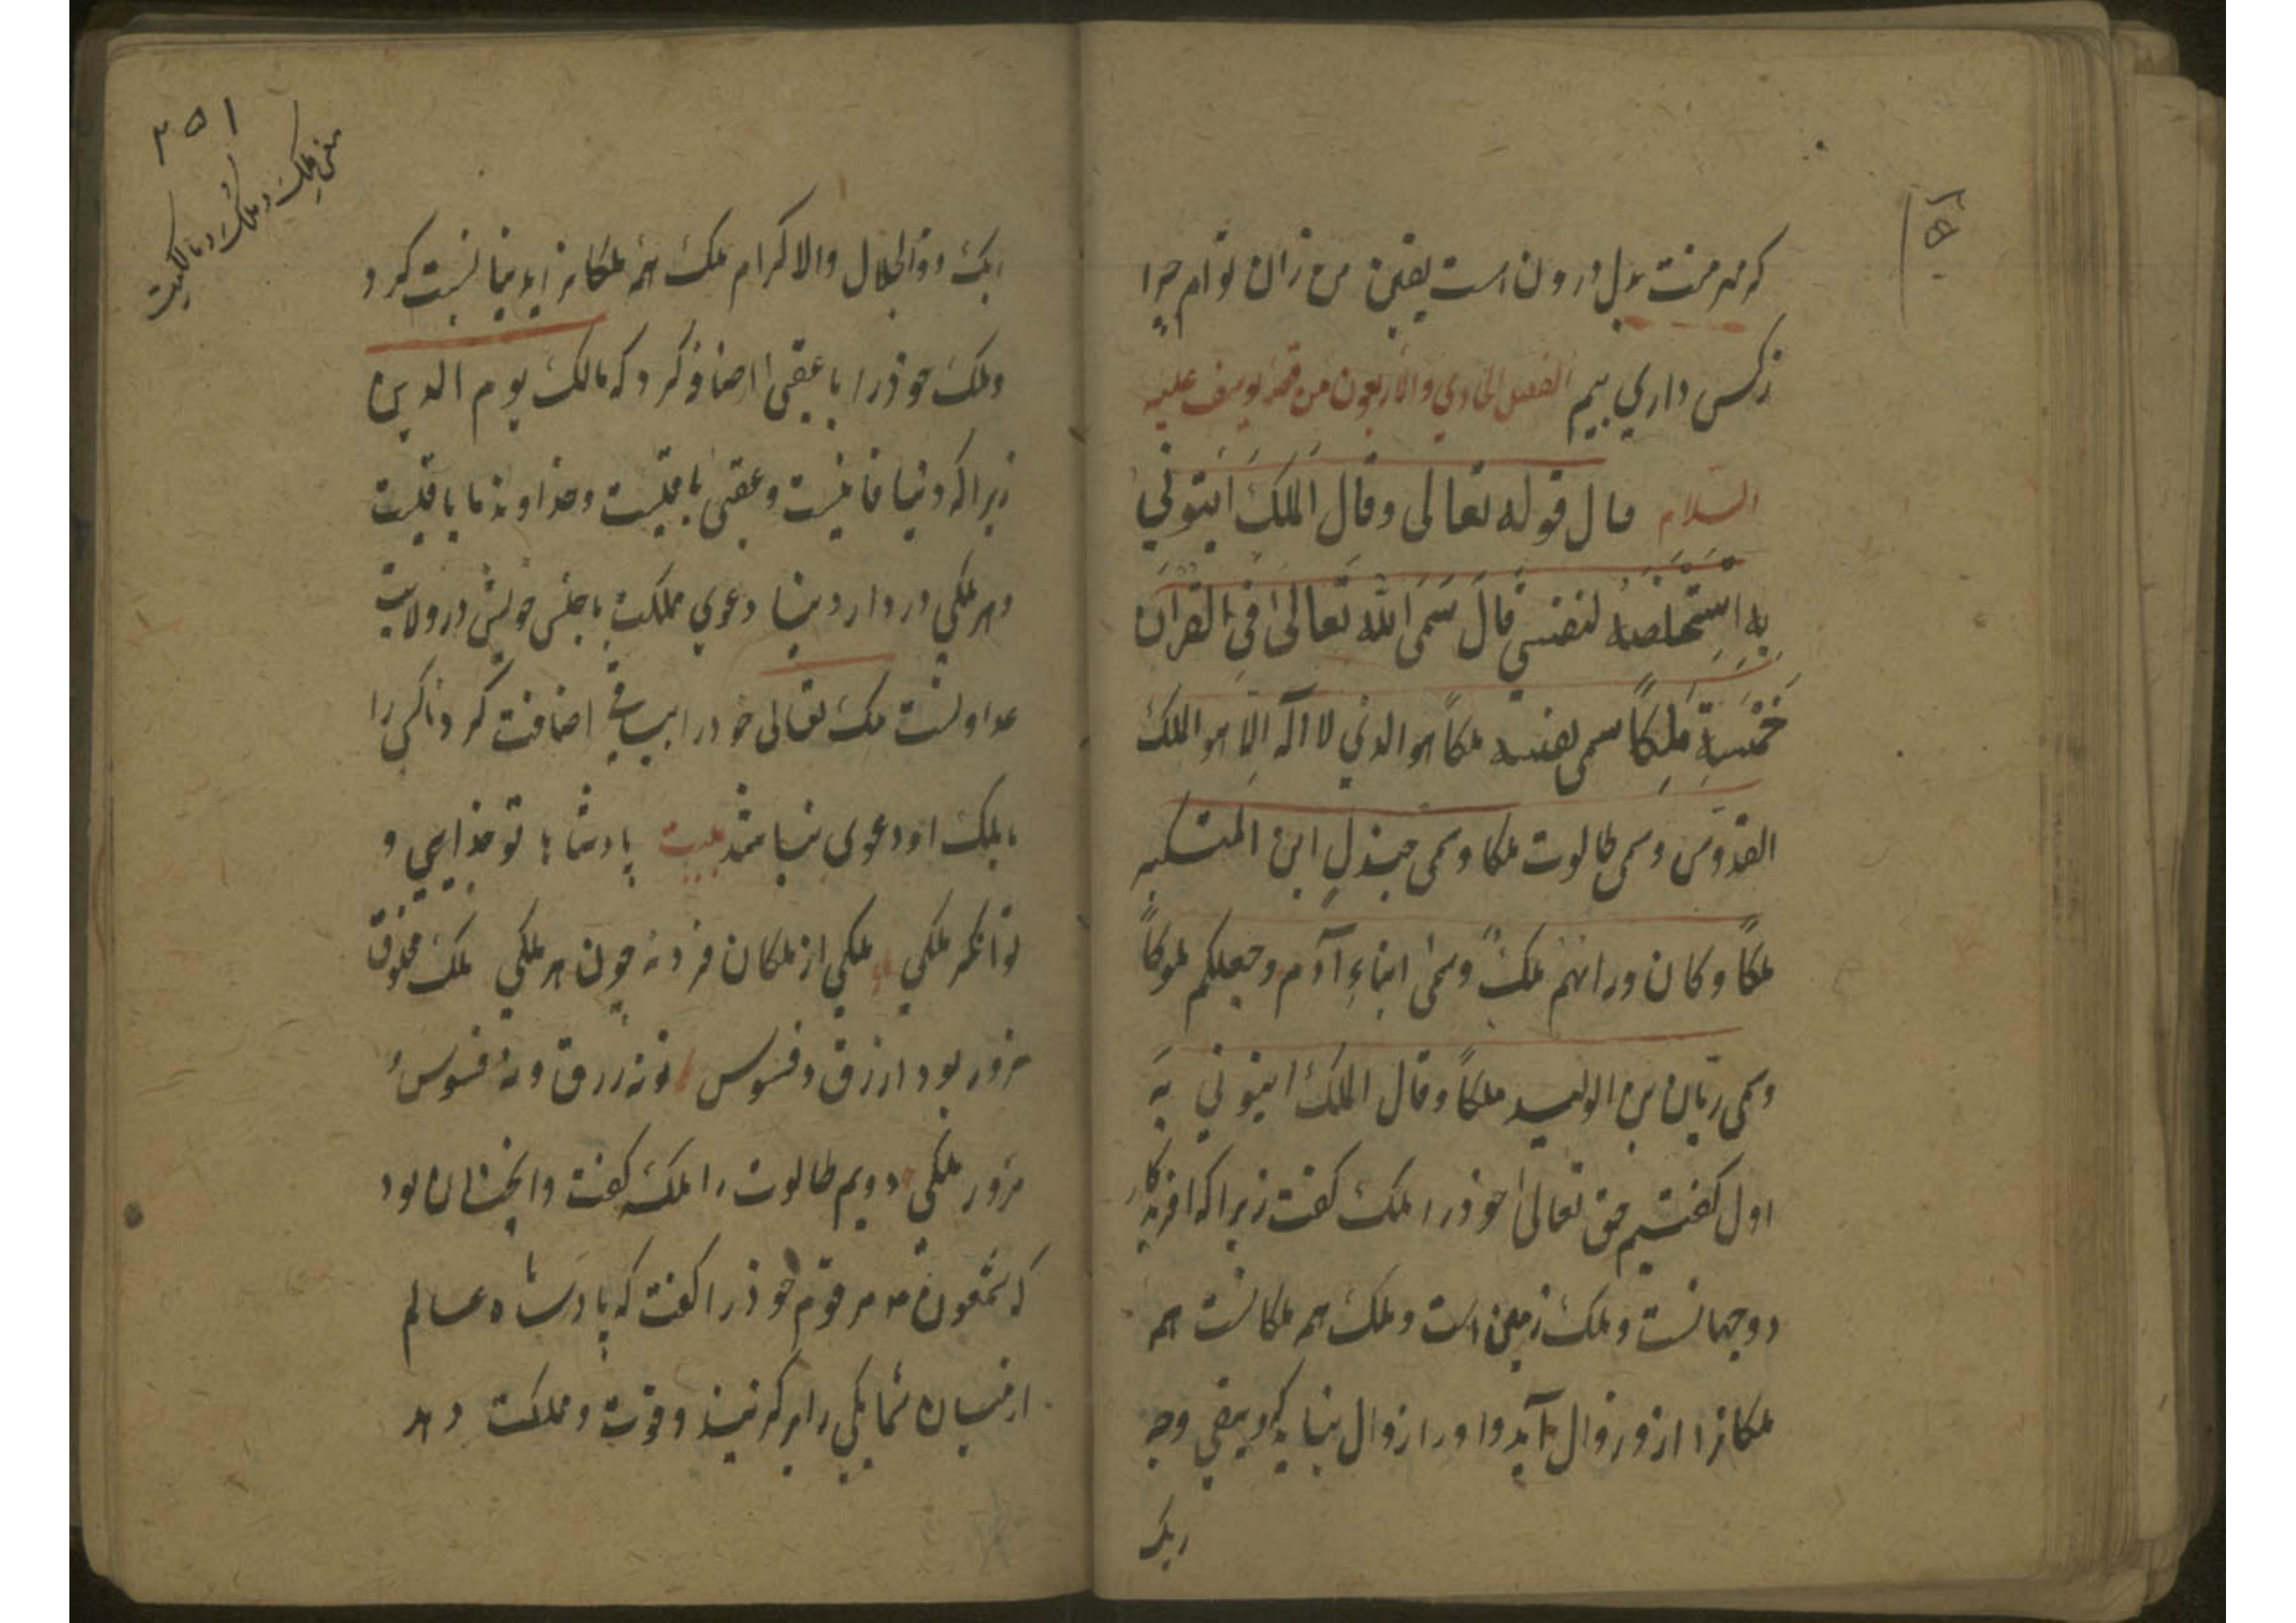 که مهر منت بدل درون است یقین من زان توام چرا
زکس داری بیم الفصل الحادی والاربعون من قصة یوسف علیه
السلام قال قوله تعالی وقال الملک ایتونی
به استخلصه لنفسی قال سمی الله تعالی فی القرآن
خمسة ملکا سمی نفسه ملکا هو الذی لا اله الا هو الملک
القدوس وسمی طالوت ملکا وسمی جندل ابن المتکبر
ملکا وکان وراءهم ملک وسمی ابناء آدم وجعلکم ملوکا
وسمی ریان بن الولید ملکا وقال الملک ایتونی به
اول کفتیم حق تعالی خوذ را ملک کفت زیرا که افریدکار
دو جهانست وملک زمین است وملک همه ملکانست همه
ملکانرا ازو زوال آید واورا زوال نباید کی ویبقی وجه
ربک
۳۵۱
معنی ملک وملک ومالکیت
ربک ذو الجلال والاکرام ملک همه ملکانرا بدنیا نسبت کرد
وملک خوذرا با عقبی اضافه کرد که مالک یوم الدین
زیرا که دنیا فانیست وعقبی باقیست وخداوند ما باقیست
وهر ملکی در دار دنیا دعوی مملکت با جنس خویش در ولایت
عداوتست ملک تعالی خود را اضافت کرد تا کس را
با ملک او دعوی نباشد بیت پادشاها تو خدایی و
توانکر ملکی ملکی از ملکان فرد نه چون هر ملکی ملک مخلوق
مزور بود ازرق وفسوس تو نه زرق ونه فسوس و
مزور ملکی دویم طالوت را ملک کفت وانجنان بود
که شمعون مر قوم خوذرا کفت که پادشاه عالم
از میان شما یکی را برکزیند وقوت ومملکت دهد